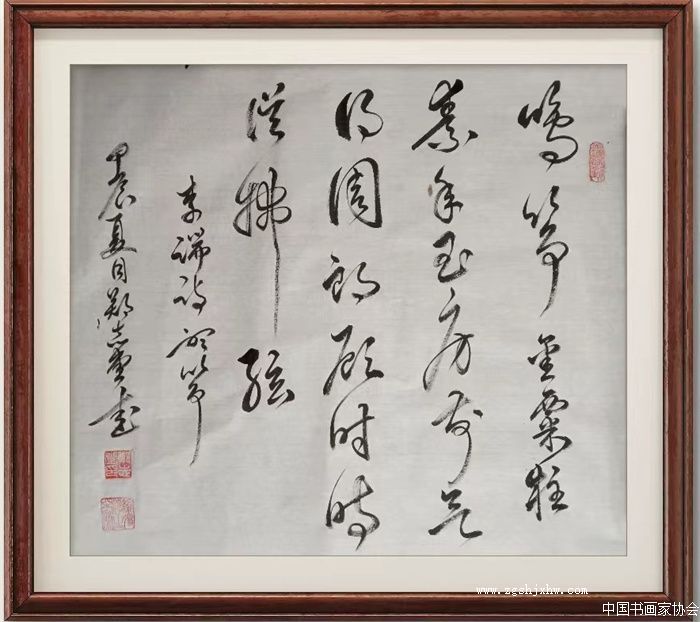 鸣筝金粟柱
素手玉房前欲
得周郎顾时時
误拂弦
李端诗听筝
甲辰夏月郑志书
www.zgshjxhw.com
中国书画家协会